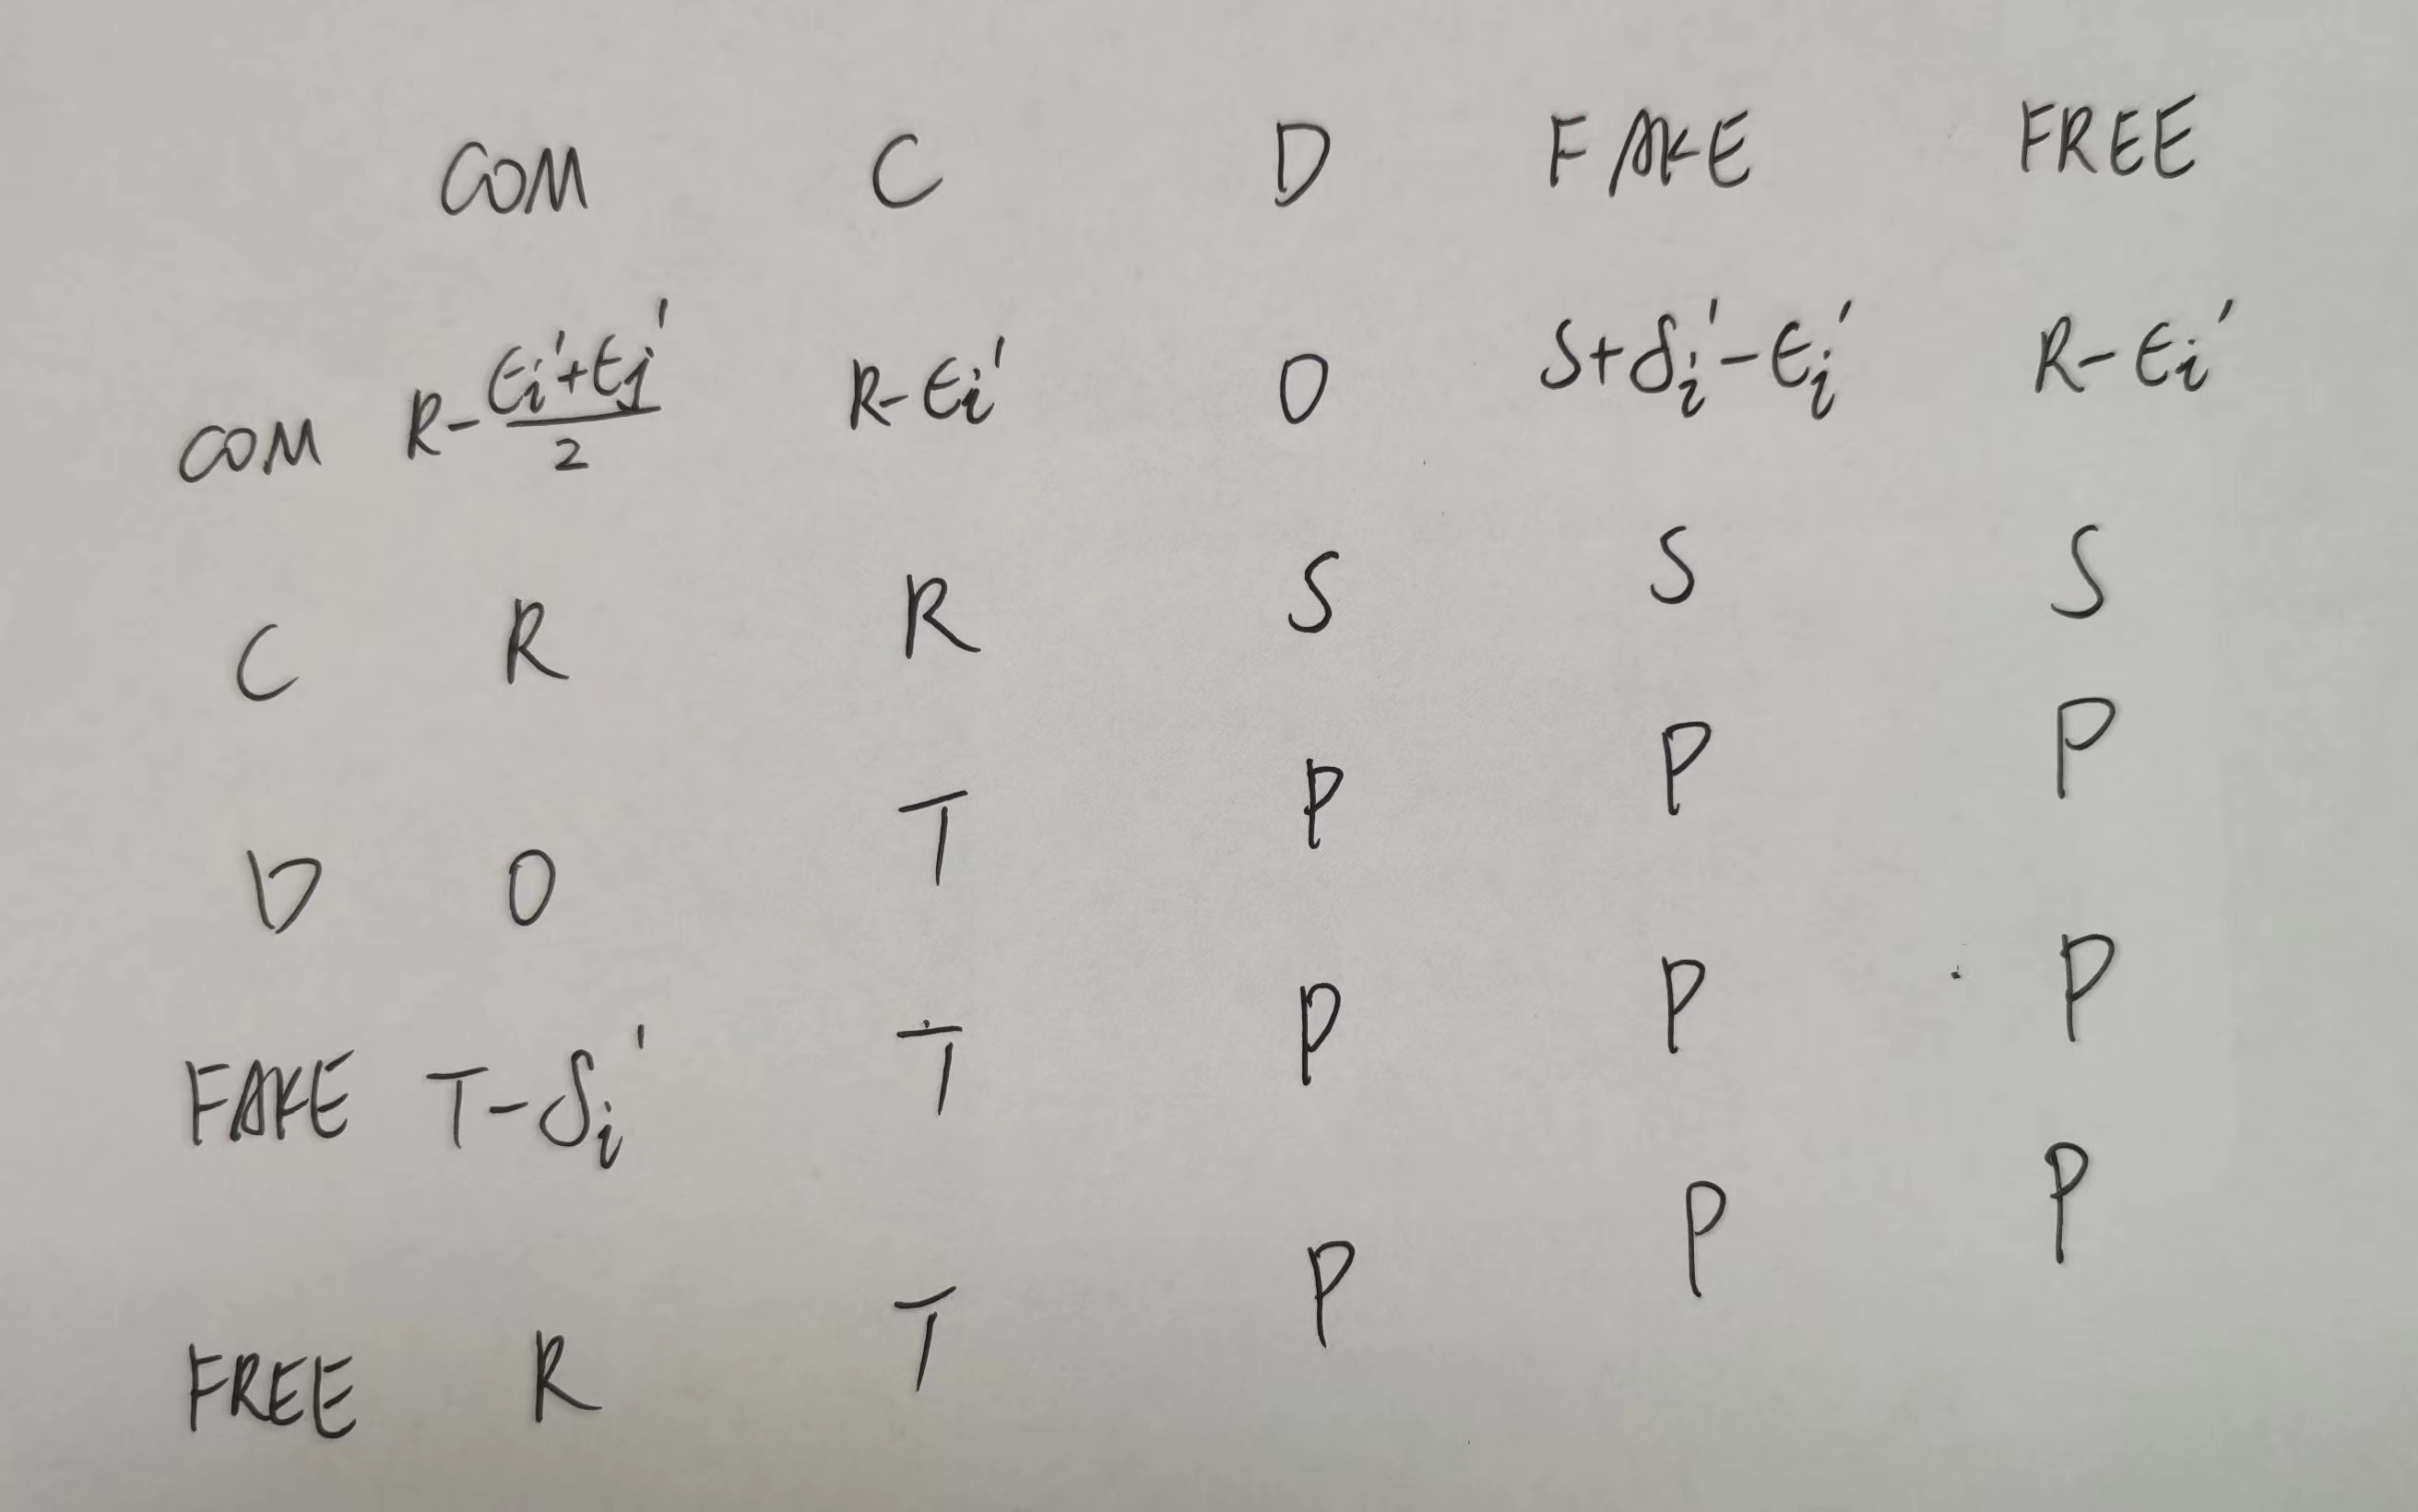 COM C D FAKE FREE
COM R-(ϵi'+ϵj')/2 R-ϵi' 0 S+δi'-ϵi' R-ϵi'
C R R S S S
D 0 T P P P
FAKE T-δi' T P P P
FREE R T P P P